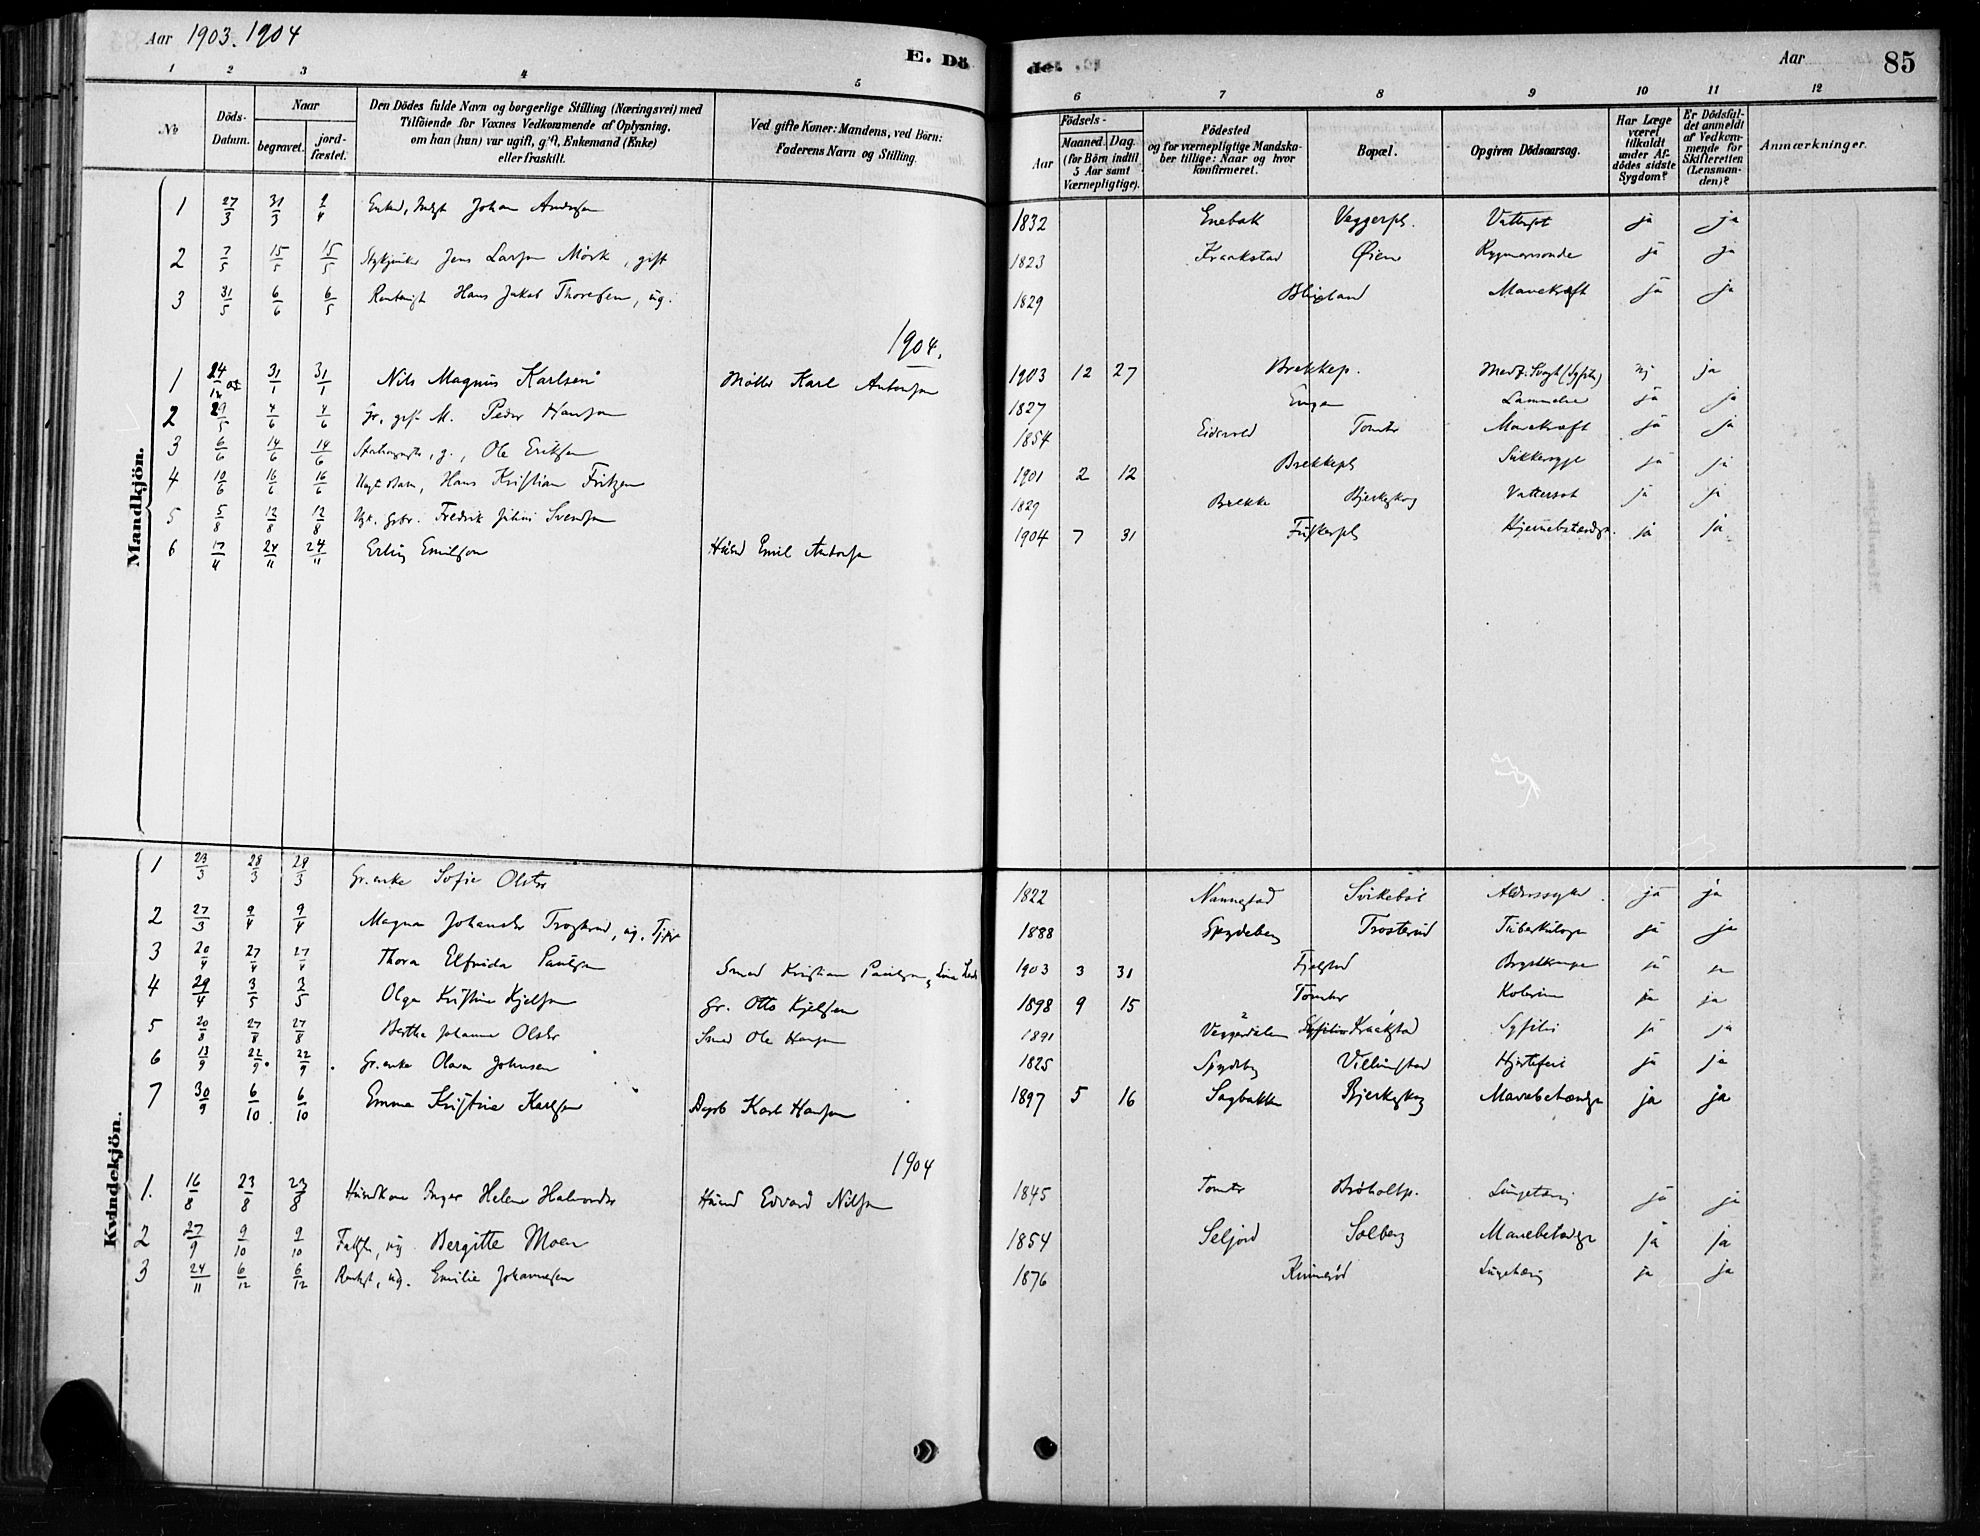 Aar 1903. 1904
E. Dö
de.
Aar
85
1 2 3 4 5 6 7 8 9 10 11 12
No
Döds-Datum.
Naar
begravet.
jord-fæstet.
Den Dödes fulde Navn og borgerlige Stilling (Næringsvei) med
Tilföiende for Voxnes Vedkommende af Oplysning,
om han (hun) var ugift, gift, Enkemand (Enke)
eller fraskilt.
Ved gifte Koner: Mandens, ved Börn:
Faderens Navn og Stilling.
Födsels-
Aar
Maaned.
Dag.
(for Börn indtil
5 Aar samt
Værnepligtige).
Födested
og for værnepligtige Mandska-
ber tillige: Naar og hvor
konfirmeret.
Bopæl.
Opgiven Dödsaarsag.
Har Læge
været
tilkaldt
under Af-
dödes sidste
Sygdom?
Er Dödsfal-
det anmeldt
af Vedkom-
mende for
Skifteretten
(Lensman-
den)?
Anmærkninger.
Mandkjön.
1 27/3 31/3 2/4 Johan Andersen 1832 Enebak Veggerpl. Vattersot ja ja
2 7/5 15/5 15/5 Jens Larsen Mörk, gift 1823 Kraakstad Øien ja ja
3 31/5 6/6 6/5 Hans Jakob Thoresen, ug. 1829 Blixland Mavekræft ja ja
1904.
1 24/12 31/1 31/1 Nils Magnus Karlsen Möller Karl Antonsen 1903 12 27 Brekkep. nej ja
2 29/5 4/6 4/6 Gr. gift M. Peder Hansen 1827 Lammelse ja ja
3 6/6 14/6 14/6 g., Ole Eriksen 1854 Eidsvold Tomter Mavekræft ja ja
4 10/6 16/6 16/6 Hans Kristian Fritzen 1901 2 12 Brekkepl Sukkersyge ja ja
5 5/8 12/8 12/8 Fredrik Julius Svendsen 1829 Brekke Bjerkeskog Vattersot ja ja
6 17/4 24/11 24/11 Erling Emilsen Husm Emil Antonsen 1904 7 31 Fuskerpl Hjernebetændgs. ja ja
Kvindekjön.
1 23/3 28/3 28/3 Gr. enke Sofie Olsdtr 1822 Nannestad Svikebøl ja ja
2 27/3 9/4 9/4 Magna Johansdtr Trosterud, ug. Tjpi 1888 Spydeberg Trosterud Tuberkulose ja ja
3 20/4 27/4 27/4 Thora Elfrida Paulsen Smed Kristian Paulsen 1903 3 31 Fjelstad ja
4 29/4 3/5 3/5 Olga Kristine Kjelsen Gr. Otto Kjelsen 1898 9 15 Tomter ja ja
5 20/8 27/8 27/8 Bertha Johanne Olsdtr Smed Ole Hansen 1891 Veggerdalen Kraakstad Syfilis ja ja
6 13/9 22/9 22/9 Gr. enke Olava Johnsen 1825 Spydebg Villingstad Hjertefeil ja ja
7 30/9 6/10 6/10 Emma Kristine Karlsen Karl Hansen 1897 5 16 Sagbakken Bjerkeskog Mavebetændgs ja ja
1904
1. 16/8 23/8 23/8 Husmkone Inger Helene Halvorsdtr Husmd Edvard Nilsen 1845 Tomter Bröholtp. Lungetæring ja ja
2 27/9 9/10 9/10 ug. Bergitte Moen 1854 Seljord Solberg Mavebetændgs ja ja
3 24/11 6/12 6/12 ug. Emilie Johannesen 1876 Lungetæring ja ja